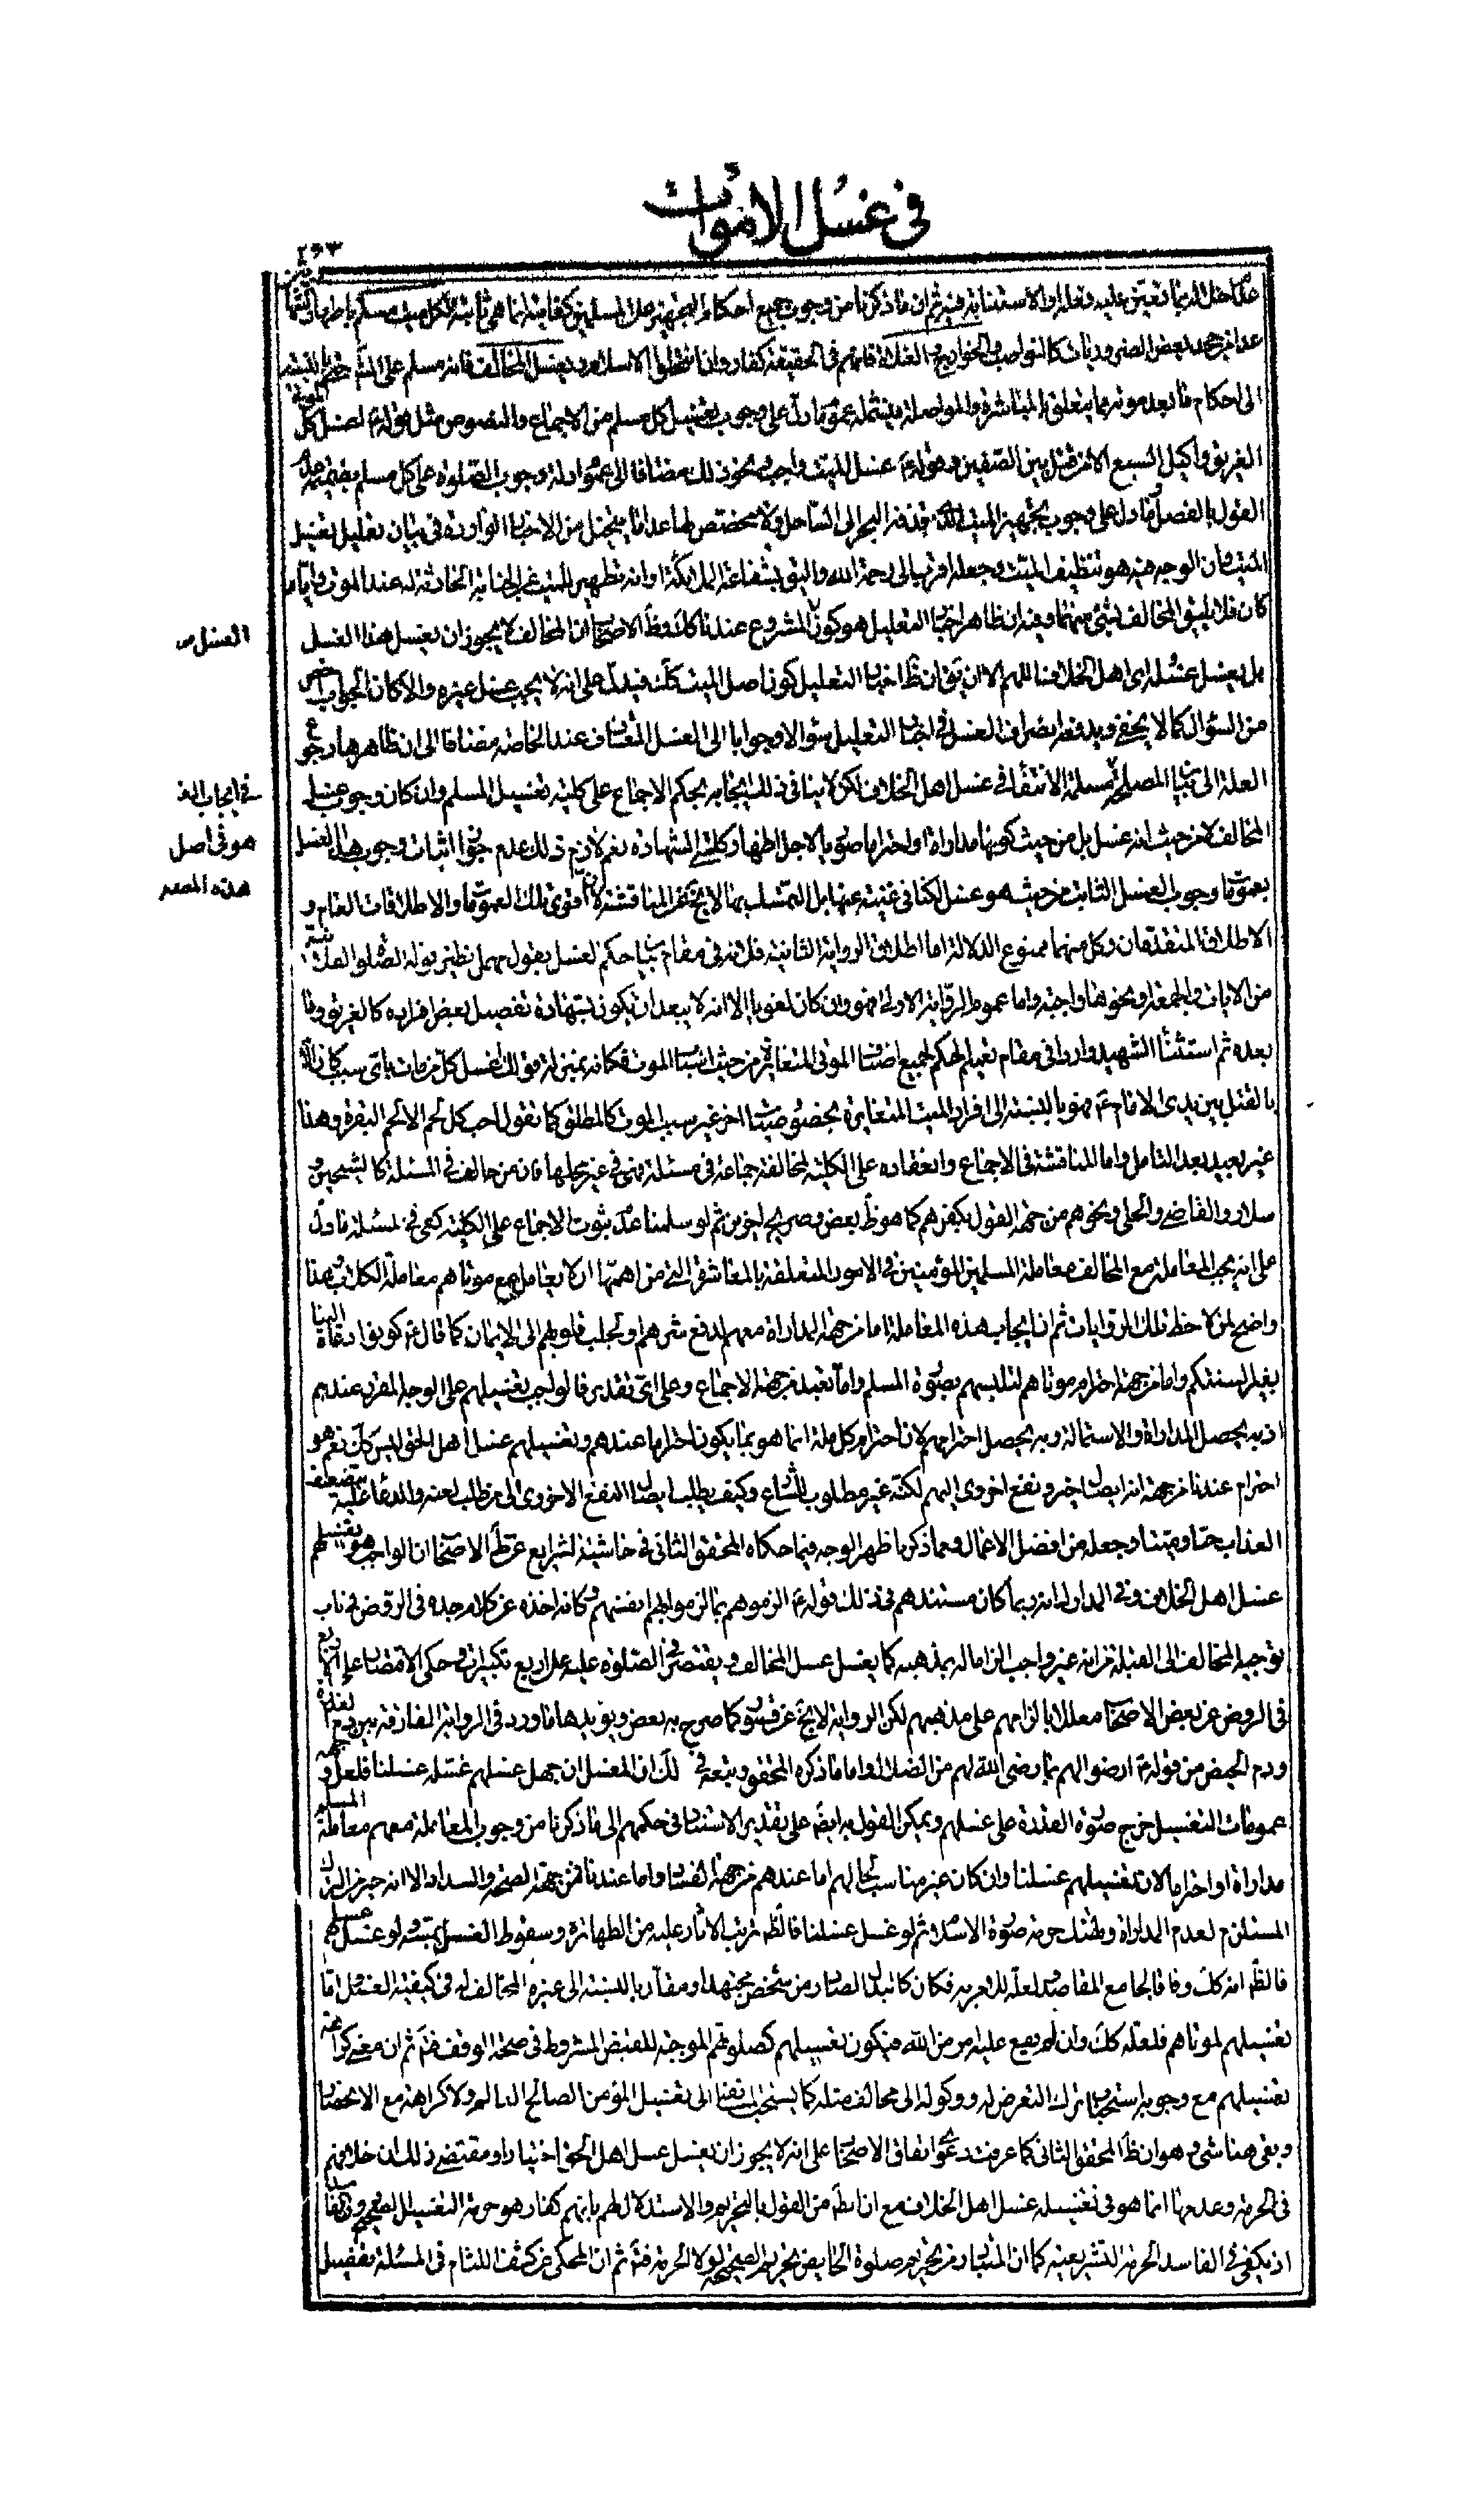 في غسل الأموات
٢٩٣
عدا من جحد بعض الضروريات كالنواصب والخوارج والغلاة فانهم في الحقيقة كفار وان انتحلوا الاسلام وبغسل المخالف فانه مسلم على
الى احكام ما بعد موته مما يتعلق بالمباشرة والمواصلة فيشمله عموم ما دل على وجوب تغسيل كل مسلم من الاجماع والنصوص مثل قوله ع اغسل كل
الغريق واكيل السبع الا من قتل بين الصفين وقوله ع غسل الميت واجب ونحو ذلك مضافا الى عموم ادلة وجوب الصلوة على كل مسلم بضميمة عدم
القول بالفصل وما دل على وجوب تجهيز الميت الذي قذفه البحر الى الساحل ولا مخصص لها عدا ما يتخيل من الاخبار الواردة في بيان تعليل تغسيل
الميت وان الوجه فيه هو تنظيف الميت وجعله اقرب الى رحمة الله واليق بشفاعة الملائكة او انه تطهير للميت عن الجنابة الحادثة له عند الموت وايا ما
كان فلا يليق المخالف لشيئ منهما وفيه ان ظاهر اخبار التعليل هو كون المشروع عندنا كذلك وظ الاصحاب ان المخالف لا يجوز ان يغسل هذا الغسل
الغسل ص
بل يغسل غسله اى اهل الخلاف اللهم الا ان يق ان ظ اخبار التعليل كون اصل الميت كك فيدل على انه لا يجب غسل غيره والا كان الجواب اخص
من السؤال كما لا يخفى ويدفعه انصراف الغسل في اخبار التعليل سؤالا وجوابا الى الغسل المتعارف عند الخاصة مضافا الى ان ظاهرها رجوع
العلة الى بيان المصلحة مسلمة الانتفاء في غسل اهل الخلاف لكن لا ينافى ذلك ايجابه بحكم الاجماع على كلية تغسيل المسلم وان كان وجوب غسل
في ايجاب الغ
هو في اصل
هذه المصد
المخالف لا من حيث انه غسل بل من حيث كونها مداراة او احتراما صوريا لاجل اظهار كلمتى الشهادة نعم لازم ذلك عدم جواز اثبات وجوب هذا الغسل
بعموم ما وجوب الغسل الثابت من حيث هو غسل لكنا في غنية عنها بل التمسك بها لا يخ عن المناقشة لان اقوى تلك العمومات والاطلاقات العام و
الاطلاق المتقدمان وكل منهما ممنوع الدلالة اما اطلاق الرواية الثانية فلانه في مقام بيان حكم الغسل بقول مهمل نظير قوله الصلوات
من الايات والجمعة ونحوها واجبة واما عموم الرواية الاولى فهو وان كان لغويا الا انه لا يبعد ان يكون بشهادة تفصيل بعض افراده كالغريق وما
بعده ثم استثناء الشهيد واردا في مقام تعميم الحكم لجميع اصناف الموتى المتغايرة من حيث اسباب الموت فكانه بمنزلة قولك اغسل كل من مات باى سبب كان الا
بالقتل بين يدى الامام ع فهو بالنسبة الى افراد الميت المتغايرة بخصوصيات اخر غير سبب الموت كالمطلق كما تقول احب كل لحم الا لحم البقرة وهذا
غير بعيد بعد التامل واما المناقشة في الاجماع وانعقاده على الكلية لمخالفة جماعة في مسئلة فهى في غير محلها فان من خالف في المسئلة كالشيخين و
سلار والقاضى والحلى ونحوهم من جهة القول بكفرهم كما هو ظ بعض وصريح اخرين ثم لو سلمنا عدم ثبوت الاجماع على الكلية كفى في المسئلة ما دل
على انه يجب المعاملة مع المخالف معاملة المسلمين المؤمنين في الامور المتعلقة بالمعاشرة التى من اهمها ان لا يعامل مع موتاهم معاملة الكلاب وهذا
واضح لمن لاحظ تلك الروايات ثم ان ايجاب هذه المعاملة اما من جهة المداراة معهم لدفع شرهم او لجلب قلوبهم الى الايمان كما قال ع كونوا دعاة الينا
بغير السنتكم واما من جهة احترام موتاهم لتلبسهم بصورة المسلم واما تعبد من جهة الاجماع وعلى اى تقدير فالواجب تغسيلهم على الوجه المقرر عندهم
اذ به يحصل المداراة والاستمالة وبه يحصل احترامهم لان احترام كل ملة انما هو بما يكون احتراما عندهم وتغسيلهم غسل اهل الحق ليس كك نعم هو
احترام عندنا من جهة انه ايصال خير ونفع اخروى اليهم لكنه غير مطلوب للشارع وكيف يطلب ايصال النفع الاخروى الى من طلب لعنه والدعاء عليه بتضعيف
العذاب حيا وميتا وجعله من افضل الاعمال ومما ذكرنا ظهر الوجه فيما حكاه المحقق الثانى في حاشية الشرايع عن ظ الاصحاب ان الواجب هو تغسيلهم
غسل اهل الخلاف وفى المدارك انه ربما كان مستندهم في ذلك قوله ع الزموهم بما الزموا به انفسهم وكانه اخذه عن كلام جده في الروض في باب
توجيه المخالف الى القبلة من انه غير واجب الزاما له بمذهبه كما يغسل غسل المخالف ويقتصر في الصلوة عليه على اربع تكبيرات وحكى الاقتصار على الاربع
في الروض عن بعض الاصحاب معللا بالزامهم على مذهبهم لكن الرواية لا يخ عن قصور كما صرح به بعض ويؤيدها ما ورد في الرواية الفارقة بين دم العذرة
ودم الحيض من قوله ع ارضوا لهم بما رضى الله لهم من الضلال واما ما ذكره المحقق وتبعه في ذلك ان المغسل ان جهل غسلهم غسله غسلنا فلعل وجهه
عمومات التغسيل خرج صورة القدرة على غسلهم ويمكن القول به ايضا على تقدير الاستناد في حكمهم الى ما ذكرنا من وجوب المعاملة معهم معاملة المسلم
مداراة او احتراما لان تغسيلهم غسلنا وان كان غير مناسب لحالهم اما عندهم من جهة الفساد واما عندنا فمن جهة الصحة والسداد الا انه خير من الترك
المستلزم لعدم المداراة وهتك حرمة صورة الاسلام ثم لو غسل غسلنا فالظ ترتب الاثار عليه من الطهارة وسقوط الغسل بمسه ولو غسل غسلهم
فالظ انه كك وفاقا لجامع المقاصد لعله للتعبد به فكان كاتيان الصادر من شخص مجتهد او مقلد بالنسبة الى غيره المخالف له في كيفية الغسل اما
تغسيلهم لموتاهم فلعله كك وان لم يقع عليه امر من الله فيكون تغسيلهم كصلوتهم الموجبة للقبض المشروط في صحة الوقف فتم ثم ان معنى كراهة
تغسيلهم مع وجوبه استحباب ترك التعرض له ووكوله الى مخالف مثله كما يستحب السبق الى تغسيل المؤمن الصالح العالم ولا كراهة مع الانحصار
وبقى هنا شئ وهو ان ظ المحقق الثانى كما عرفت دعوى اتفاق الاصحاب على انه لا يجوز ان يغسل غسل اهل الحق اختيارا ومقتضى ذلك ان خلافهم
في الحرمة وعدمها انما هو في تغسيله غسل اهل الخلاف مع ان ظ من القول بالتحريم والاستدلال لهم بانهم كفار هو حرمة التغسيل الصحيح
اذ يكفى في الفاسد الحرمة التشريعية كما ان المتبادر من تحريم صلوة الحايض تحريم الصحيحة لولا الحرمة فتم ثم ان المحكى عن كشف اللثام في المسئلة تفصيل